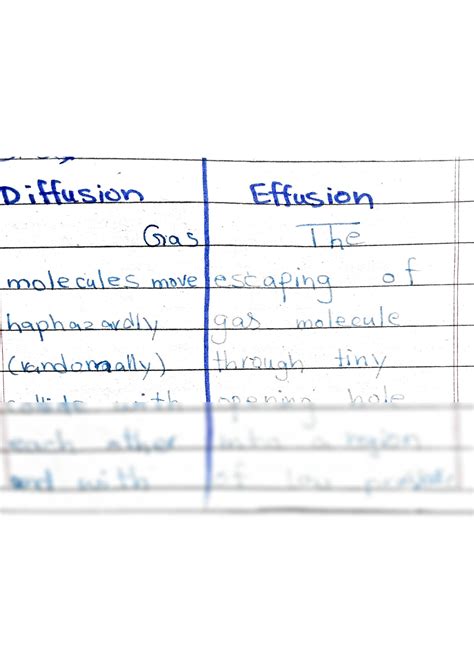 Diffusion
Gas
molecules move
haphazardly
(randomally)
collide with
each other
and with
Effusion
The
escaping of
gas molecule
through tiny
opening hole
into a region
of low